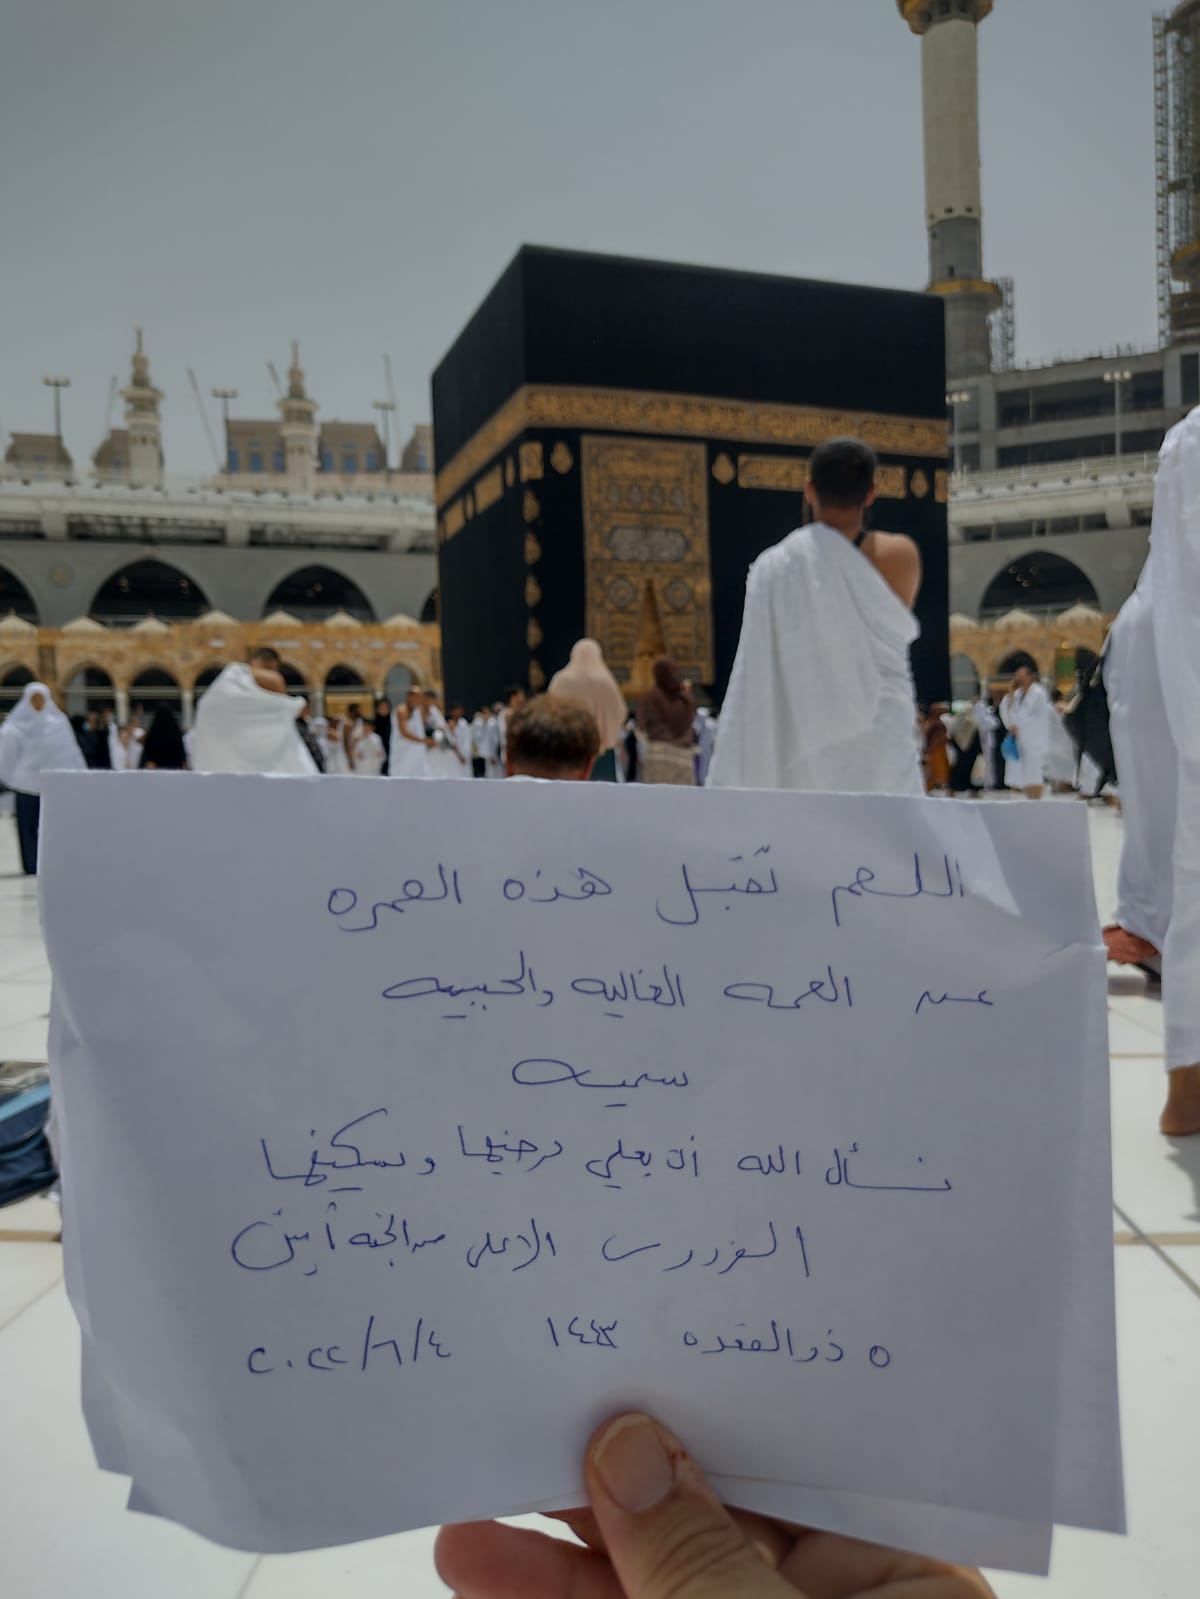 اللهم تقبّل هذه العمره
عن العمه الغاليه والحبيبه
سميه
نسأل الله أن يعلي درجتها ويسكنها
الفردوس الاعلى من الجنه أمين
٥ ذو القعده ١٤٤٣ ٢٠٢٢/٦/٤